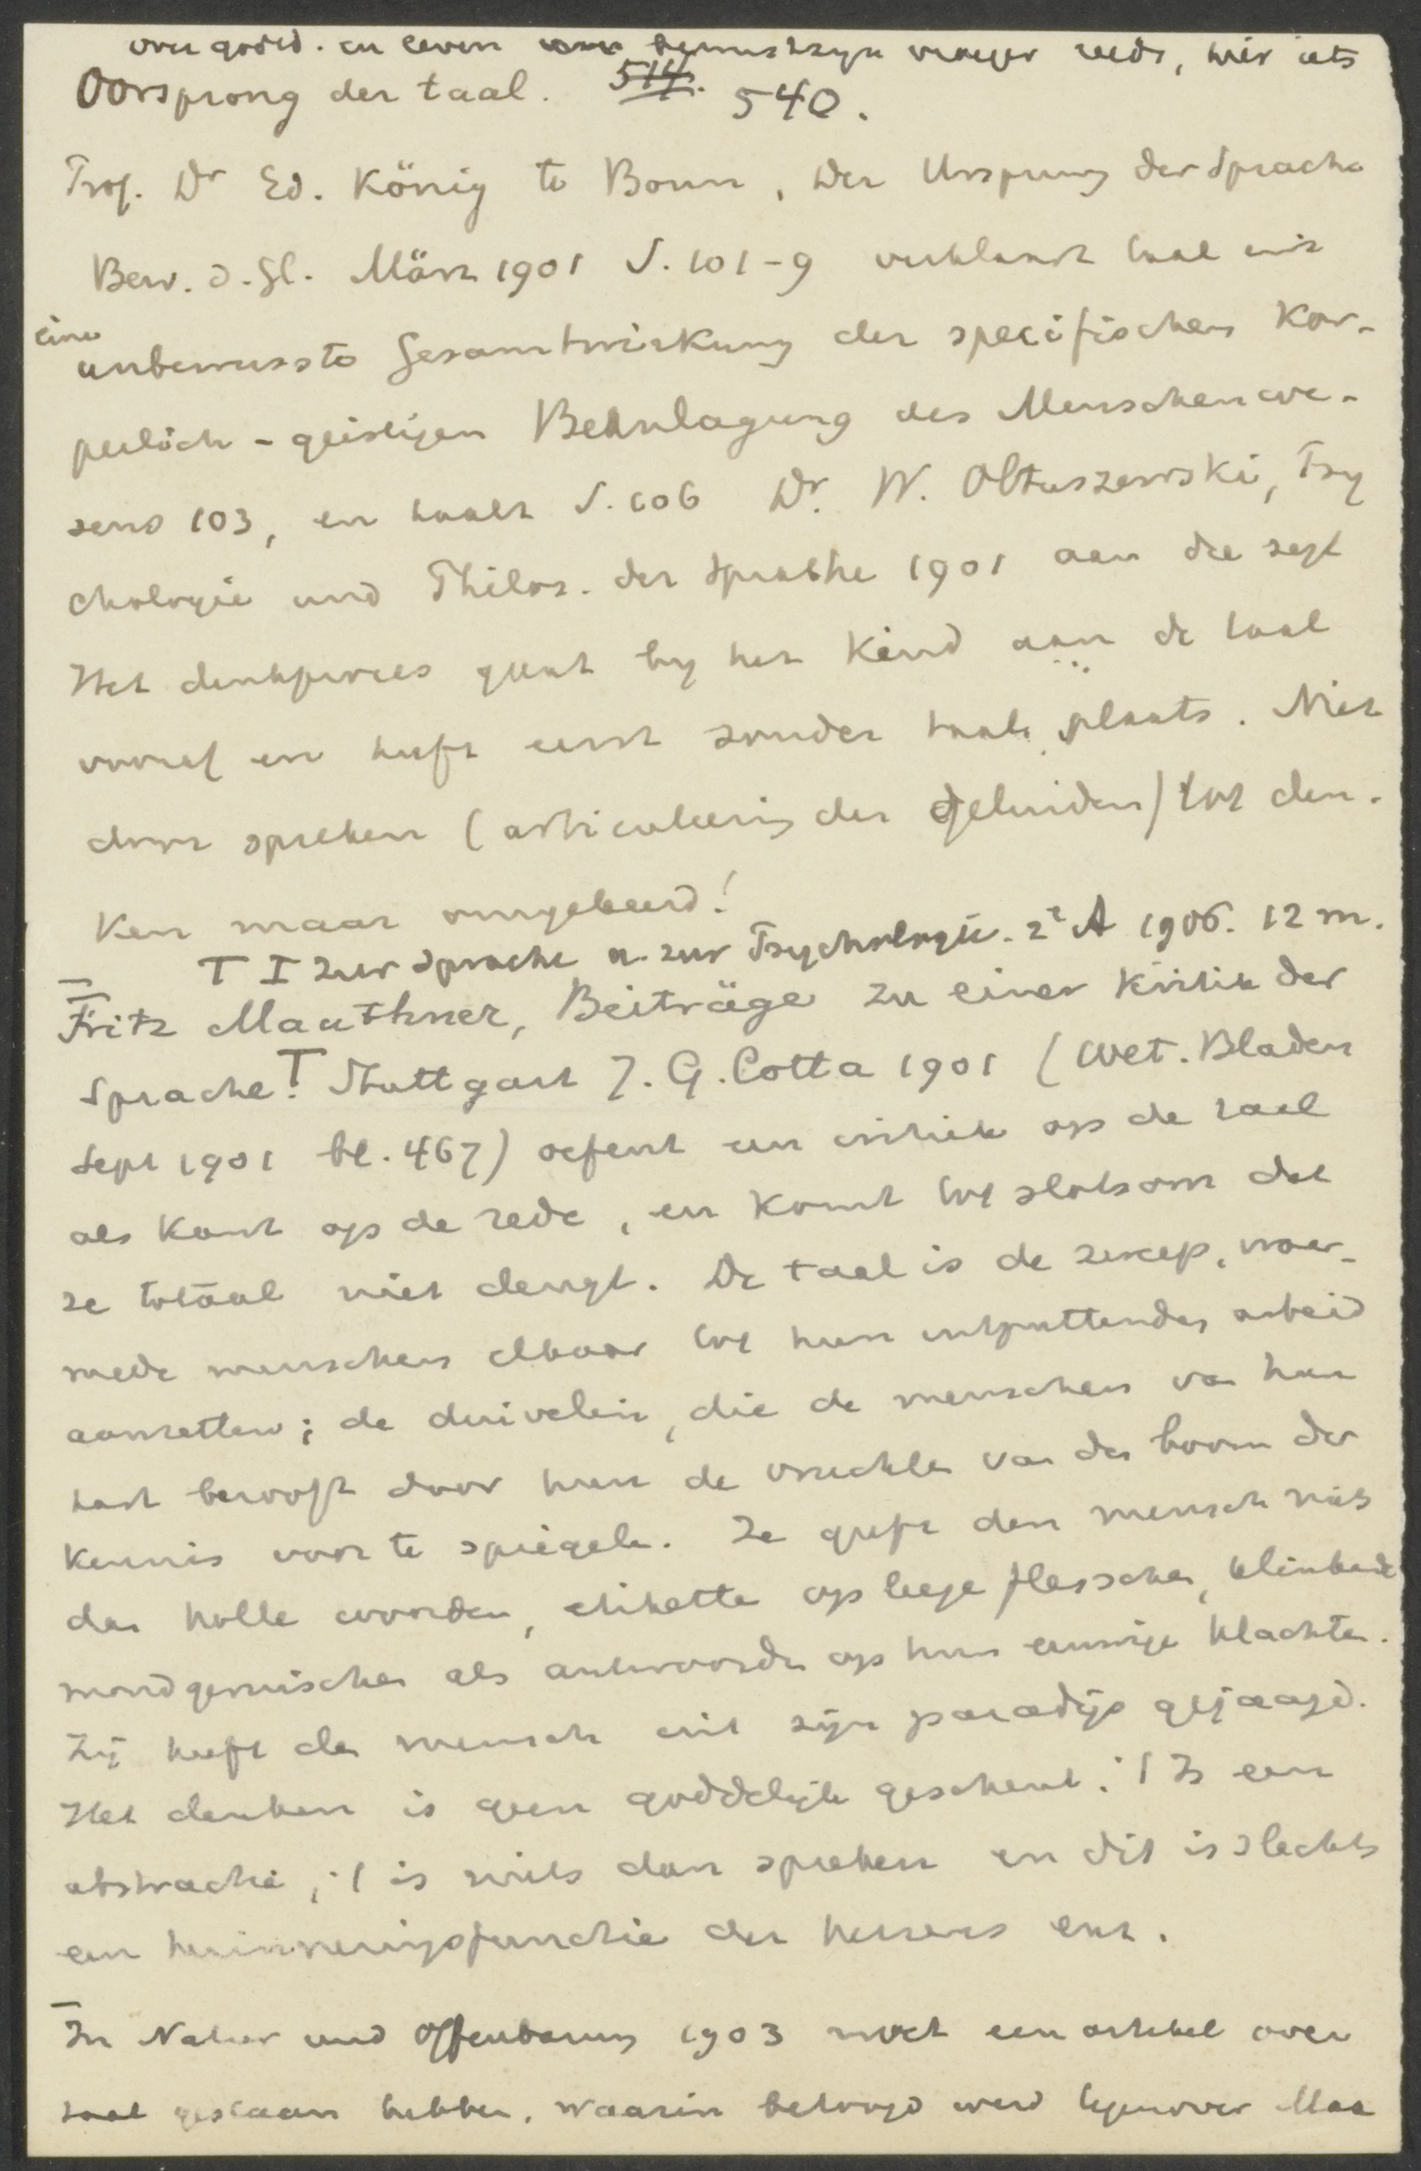 over godsd. en leven bewustzijn vroeger reeds, hier iets
Oorsprong der taal. 514. 540.
Prof. Dr Ed. König te Bonn, Der Ursprung der Sprache
Bew. d. Gl. März 1901 S. 101-9 verklaart taal uit
eine
unbewusste Gesamtwirkung der specifischen Kör-
perlich-geistigen Beanlagung des Menschenwe-
sens 103, en haalt S. 106 Dr. W. Oltuszewski, Psy
chologie und Philos. der Sprache 1901 aan die zegt
Het denkproces gaat by het Kind aan de taal
vooraf en heeft eerst zonder taal plaats. Niet
door spreken (articuleering der geluiden) tot den-
Ken maar omgekeerd!
T I Zur Sprache u. zur Psychologie. 2e A 1906. 12 m.
Fritz Mauthner, Beiträge zu einer Kritik der
Sprache! T Stuttgart J. G. Cotta 1901 (Wet. Bladen
Sept 1901 bl. 467) oefent een critiek op de taal
als Kant op de rede, en komt tot slotsom dat
ze totaal niet deugt. De taal is de zweep, waar-
mede menschen elkaar tot hun uitputtenden arbeid
aanzetten; de duivelin, die de menschen van hun
hart berooft door hun de vruchten van den boom der
Kennis voor te spiegelen. Ze geeft den mensch niets
dan holle woorden, etiketten op leege flesschen, klinkende
mondgeruischen als antwoorden op hun eeuwige klachten.
Zij heeft den mensch uit zijn paradijs gejaagd.
Het denken is geen goddelijk geschenk; 't Is een
abstractie, 't is niets dan spreken en dit is slechts
een herinneringsfunctie der hersens enz.
In Natur und Offenbarung 1903 moet een artikel over
taal gestaan hebben, waarin betoogd werd tegenover Mau